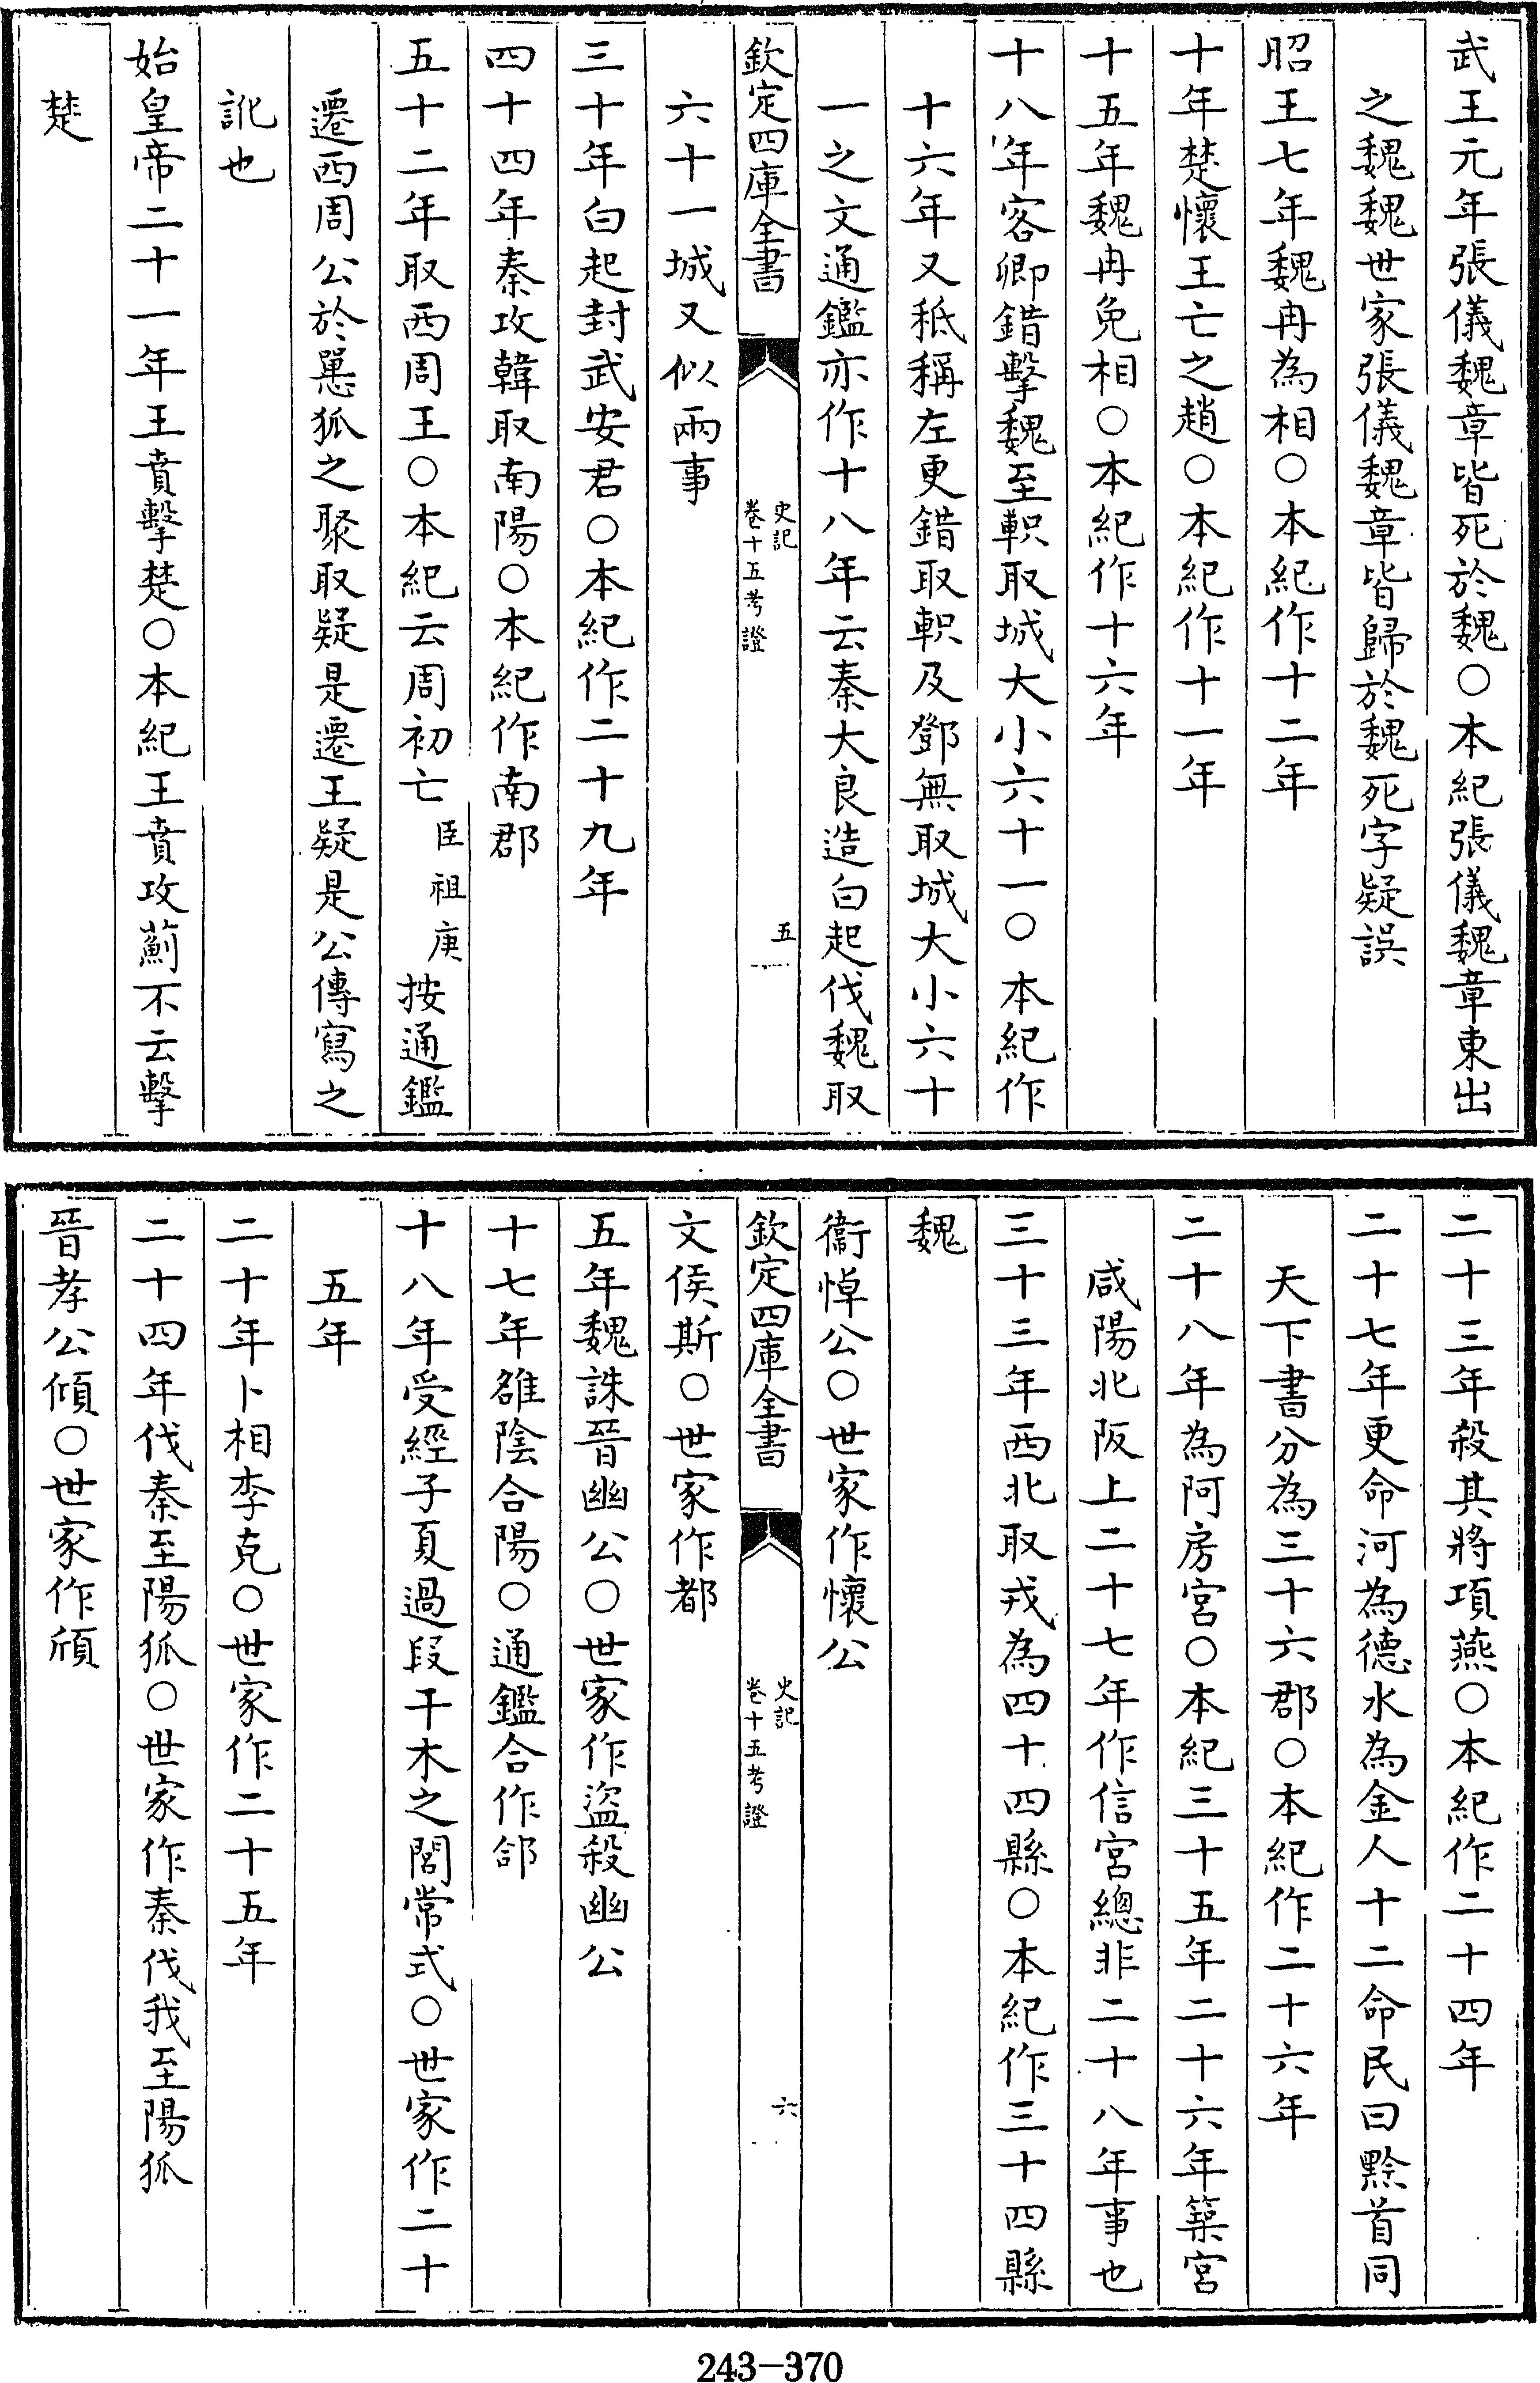 武王元年張儀魏章皆死於魏○本紀張儀魏章東出
之魏魏世家張儀魏章皆歸於魏死字疑誤
昭王七年魏冉為相○本紀作十二年
十年楚懷王亡之趙○本紀作十一年
十五年魏冉免相○本紀作十六年
十八年客卿錯擊魏至軹取城大小六十一○本紀作
十六年又秪稱左更錯取軹及鄧無取城大小六十
一之文通鑑亦作十八年云秦大良造白起伐魏取
欽定四庫全書
史記
卷十五考證
五
六十一城又似兩事
三十年白起封武安君○本紀作二十九年
四十四年秦攻韓取南陽○本紀作南郡
五十二年取西周王○本紀云周初亡臣祖庚按通鑑
遷西周公於㥈狐之聚取疑是遷王疑是公傳寫之
訛也
始皇帝二十一年王賁擊楚○本紀王賁攻薊不云擊
楚
二十三年殺其將項燕○本紀作二十四年
二十七年更命河為德水為金人十二命民曰黔首同
天下書分為三十六郡○本紀作二十六年
二十八年為阿房宮○本紀三十五年二十六年築宮
咸陽北阪上二十七年作信宮總非二十八年事也
三十三年西北取戎為四十四縣○本紀作三十四縣
魏
衞悼公○世家作懷公
欽定四庫全書
史記
卷十五考證
六
文侯斯○世家作都
五年魏誅晉幽公○世家作盜殺幽公
十七年雒陰合陽○通鑑合作郃
十八年受經子夏過段干木之閭常式○世家作二十
五年
二十年卜相李克○世家作二十五年
二十四年伐秦至陽狐○世家作秦伐我至陽狐
晉孝公傾○世家作頎
243-370